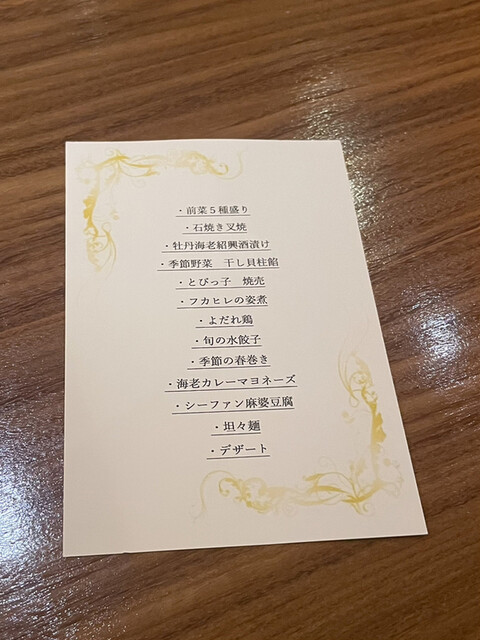 ・前菜５種盛り
・石焼き叉焼
・牡丹海老紹興酒漬け
・季節野菜　干し貝柱餡
・とびっ子　焼売
・フカヒレの姿煮
・よだれ鶏
・旬の水餃子
・季節の春巻き
・海老カレーマヨネーズ
・シーファン麻婆豆腐
・坦々麺
・デザート